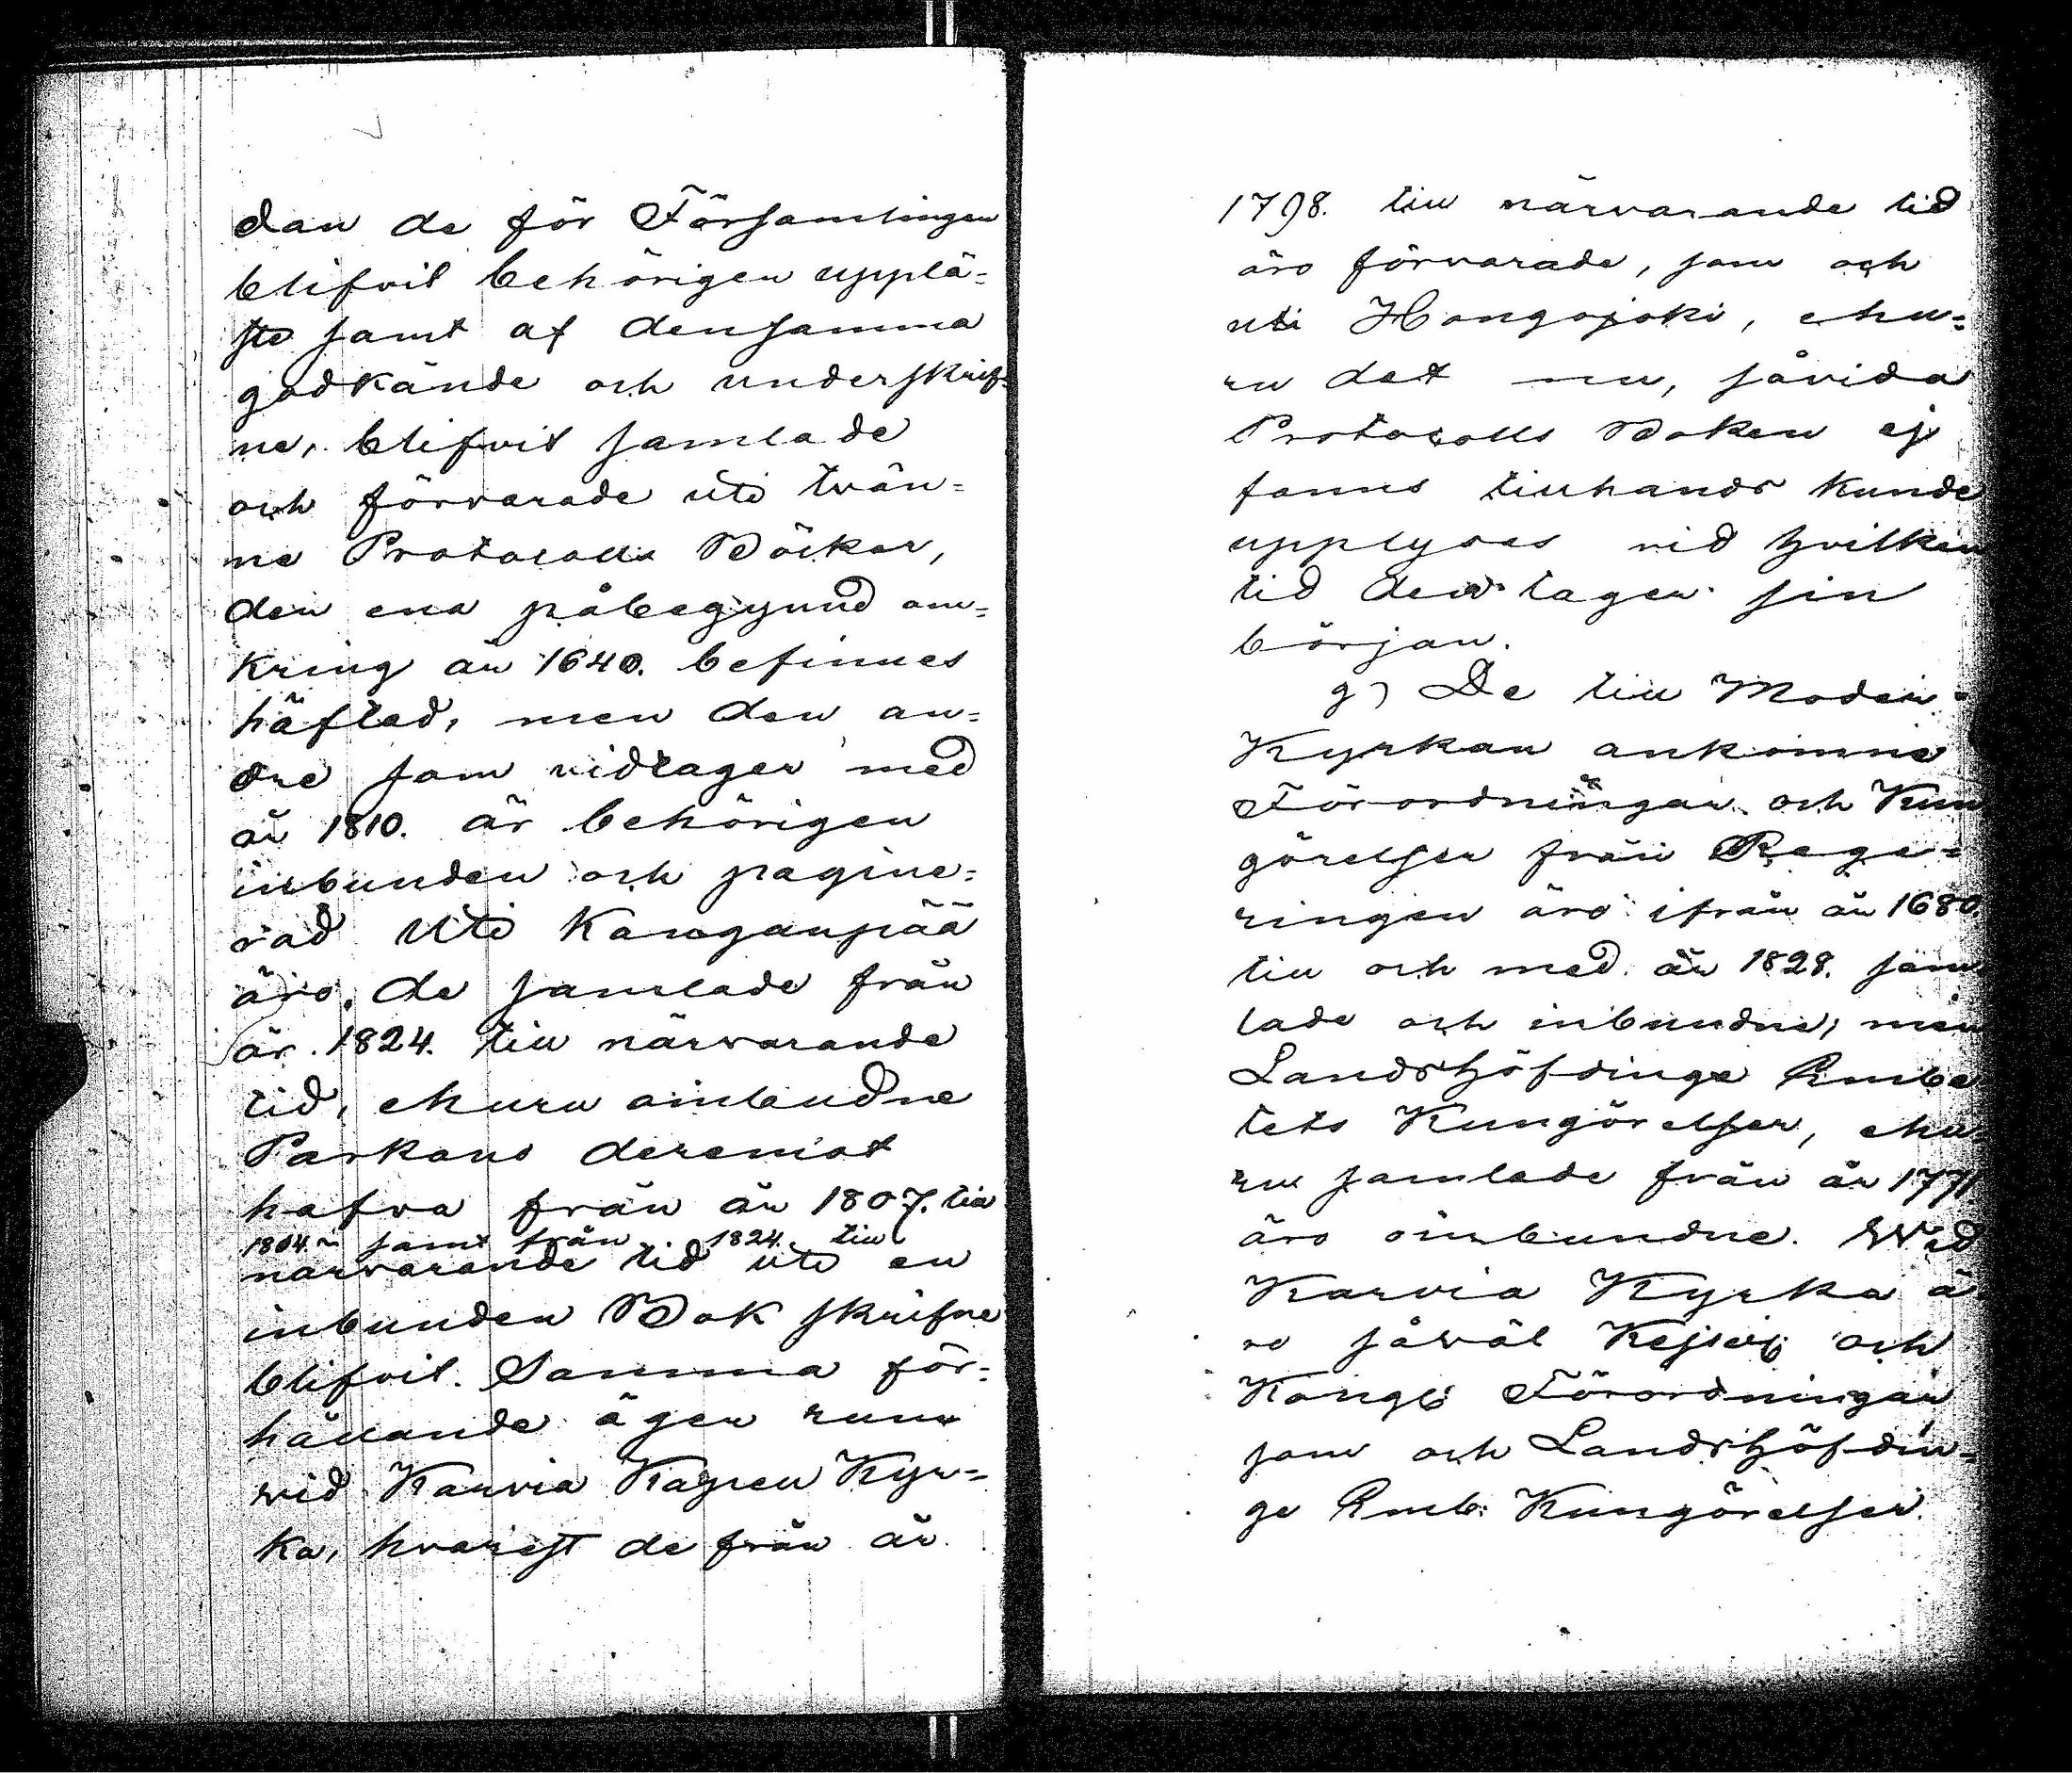 dan de för Församlingen
blifvit behörigen upplä=
ste samt af densamma
godkände och underskrif=
ne, blifvit samlade
och förvarade uti tvän=
ne Protocolls Böcker,
den ena påbegynnd om=
kring år 1640. befinnes
häftad, men den an=
dre som vidtager med
år 1810. är behörigen
inbunden och pagine=
rad Uti Kanganpää
äro de samlade från
år 1824. till närvarande
tid, ehuru oinbudne
Parkano deremot
hafva från år 1807. till
1804 samt från 1824. till
närvarande tid uti en
inbunden Bok skrifne
blifvit. Samma för=
hållande äger rum
vid Karvia Kapell Kyr=
ka, hvarest de från år
1798. till närvarande tid
äro förvarade, som och
uti Hongojoki, ehu=
ru det nu, såvida
Protocolls Boken ej
fanns tillhands kunde
upplyses vid hvilken
tid den tager sin
början.
g) De till Moder=
Kyrkan ankomne
Förordningar och Kun
görelser från Rege=
ringen äro ifrån år 1680.
till och med år 1828. sam
lade och inbundne, men
Landshöfdinge Embe
tets Kungörelser, ehu=
ru samlade från år 1771
äro oinbundne. Wid
Karvia Kyrka ä
ro såväl Kejserl: och
Kongl: Förordningar
som och Landshöfdin=
ge Emb: Kungörelser.